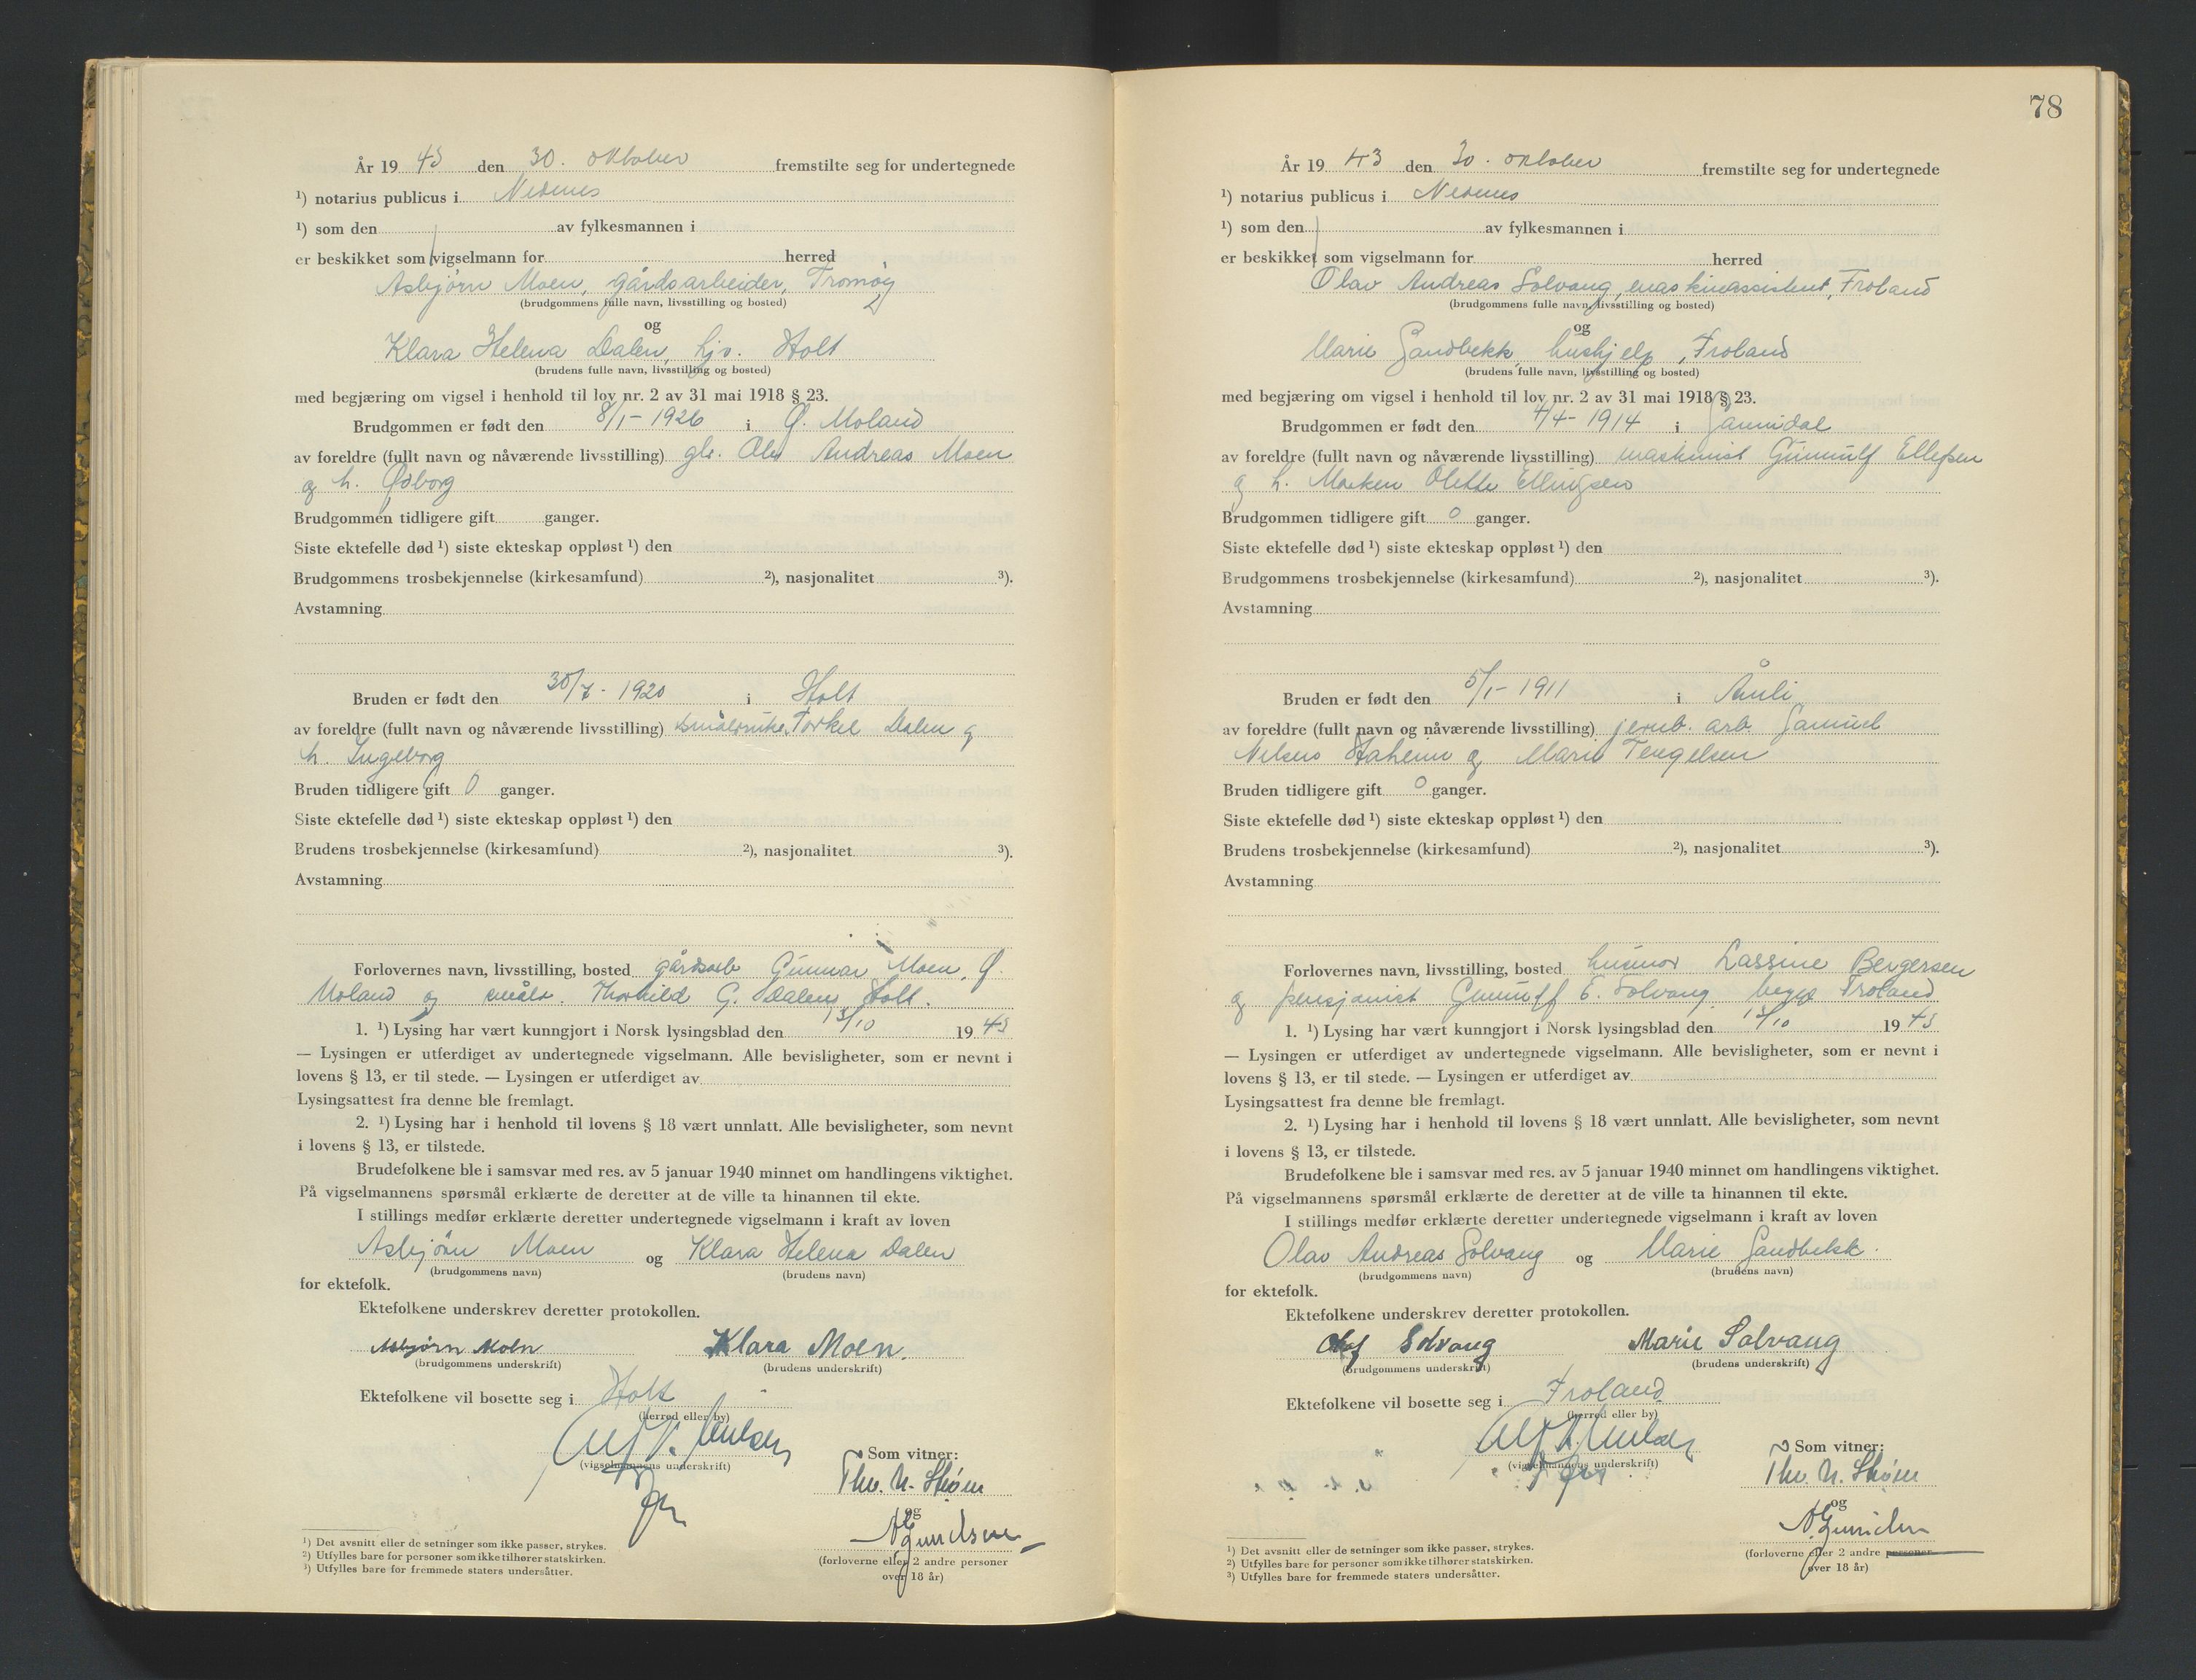 År 19 43 den 30. oktober fremstilte seg for undertegnede
¹) notarius publicus i Nedenes
¹) som den av fylkesmannen i
er beskikket som vigselmann for herred
Asbjørn Moen, gårdsarbeider, Tromøy
(brudgommens fulle navn, livsstilling og bosted)
og
Klara Helena Dalen, hjv. Holt
(brudens fulle navn, livsstilling og bosted)
med begjæring om vigsel i henhold til lov nr. 2 av 31 mai 1918 § 23.
Brudgommen er født den 8/1- 1926 i Ø. Moland
av foreldre (fullt navn og nåværende livsstilling) Andreas Moen
og h. Ødborg
Brudgommen tidligere gift ganger.
Siste ektefelle død ¹) siste ekteskap oppløst ¹) den
Brudgommens trosbekjennelse (kirkesamfund) ²), nasjonalitet ³).
Avstamning
Bruden er født den 30/7- 1920 i Holt
av foreldre (fullt navn og nåværende livsstilling) Torkel Dalen og
h. Ingeborg
Bruden tidligere gift 0 ganger.
Siste ektefelle død ¹) siste ekteskap oppløst ¹) den
Brudens trosbekjennelse (kirkesamfund) ²), nasjonalitet ³).
Avstamning
Forlovernes navn, livsstilling, bosted gårdsarb Gunnar Moen, Ø.
Moland og G. Dalen, Holt.
1. ¹) Lysing har vært kunngjort i Norsk lysingsblad den 13/10 19 43
— Lysingen er utferdiget av undertegnede vigselmann. Alle bevisligheter, som er nevnt i
lovens § 13, er til stede. — Lysingen er utferdiget av
Lysingsattest fra denne ble fremlagt.
2. ¹) Lysing har i henhold til lovens § 18 vært unnlatt. Alle bevisligheter, som nevnt
i lovens § 13, er tilstede.
Brudefolkene ble i samsvar med res. av 5 januar 1940 minnet om handlingens viktighet.
På vigselmannens spørsmål erklærte de deretter at de ville ta hinannen til ekte.
I stillings medfør erklærte deretter undertegnede vigselmann i kraft av loven
Asbjørn Moen og Klara Helena Dalen
(brudgommens navn) (brudens navn)
for ektefolk.
Ektefolkene underskrev deretter protokollen.
Asbjørn Moen Klara Moen.
(brudgommens underskrift) (brudens underskrift)
Ektefolkene vil bosette seg i Holt
(herred eller by)
(vigselmannens underskrift)
Som vitner:
Thv. N. Strøm
og
(forloverne eller 2 andre personer
over 18 år)
¹) Det avsnitt eller de setninger som ikke passer, strykes.
²) Utfylles bare for personer som ikke tilhører statskirken.
³) Utfylles bare for fremmede staters undersåtter.
78
År 19 43 den 30. oktober fremstilte seg for undertegnede
¹) notarius publicus i Nedenes
¹) som den av fylkesmannen i
er beskikket som vigselmann for herred
Olav Andreas Solvang, maskinassistent, Froland
(brudgommens fulle navn, livsstilling og bosted)
og
Marie Sandbekk, hushjelp, Froland
(brudens fulle navn, livsstilling og bosted)
med begjæring om vigsel i henhold til lov nr. 2 av 31 mai 1918 § 23.
Brudgommen er født den 4/4- 1914 i Sannidal
av foreldre (fullt navn og nåværende livsstilling) maskinist Gunnulf Ellefsen
og h. Olette Ellingsen
Brudgommen tidligere gift 0 ganger.
Siste ektefelle død ¹) siste ekteskap oppløst ¹) den
Brudgommens trosbekjennelse (kirkesamfund) ²), nasjonalitet ³).
Avstamning
Bruden er født den 5/1- 1911 i Åmli
av foreldre (fullt navn og nåværende livsstilling) jernb. arb. Samuel
og Marie Tengelsen
Bruden tidligere gift 0 ganger.
Siste ektefelle død ¹) siste ekteskap oppløst ¹) den
Brudens trosbekjennelse (kirkesamfund) ²), nasjonalitet ³).
Avstamning
Forlovernes navn, livsstilling, bosted husmor Lassine Bergersen
og pensjonist Gunulf E. Solvang, begge Froland
1. ¹) Lysing har vært kunngjort i Norsk lysingsblad den 13/10 19 43
— Lysingen er utferdiget av undertegnede vigselmann. Alle bevisligheter, som er nevnt i
lovens § 13, er til stede. — Lysingen er utferdiget av
Lysingsattest fra denne ble fremlagt.
2. ¹) Lysing har i henhold til lovens § 18 vært unnlatt. Alle bevisligheter, som nevnt
i lovens § 13, er tilstede.
Brudefolkene ble i samsvar med res. av 5 januar 1940 minnet om handlingens viktighet.
På vigselmannens spørsmål erklærte de deretter at de ville ta hinannen til ekte.
I stillings medfør erklærte deretter undertegnede vigselmann i kraft av loven
Olav Andreas Solvang og Marie Sandbekk.
(brudgommens navn) (brudens navn)
for ektefolk.
Ektefolkene underskrev deretter protokollen.
Olaf Solvang Marie Solvang
(brudgommens underskrift) (brudens underskrift)
Ektefolkene vil bosette seg i Froland
(herred eller by)
(vigselmannens underskrift)
Som vitner:
Thv. N. Strøm
og
(forloverne eller 2 andre personer
over 18 år)
¹) Det avsnitt eller de setninger som ikke passer, strykes.
²) Utfylles bare for personer som ikke tilhører statskirken.
³) Utfylles bare for fremmede staters undersåtter.